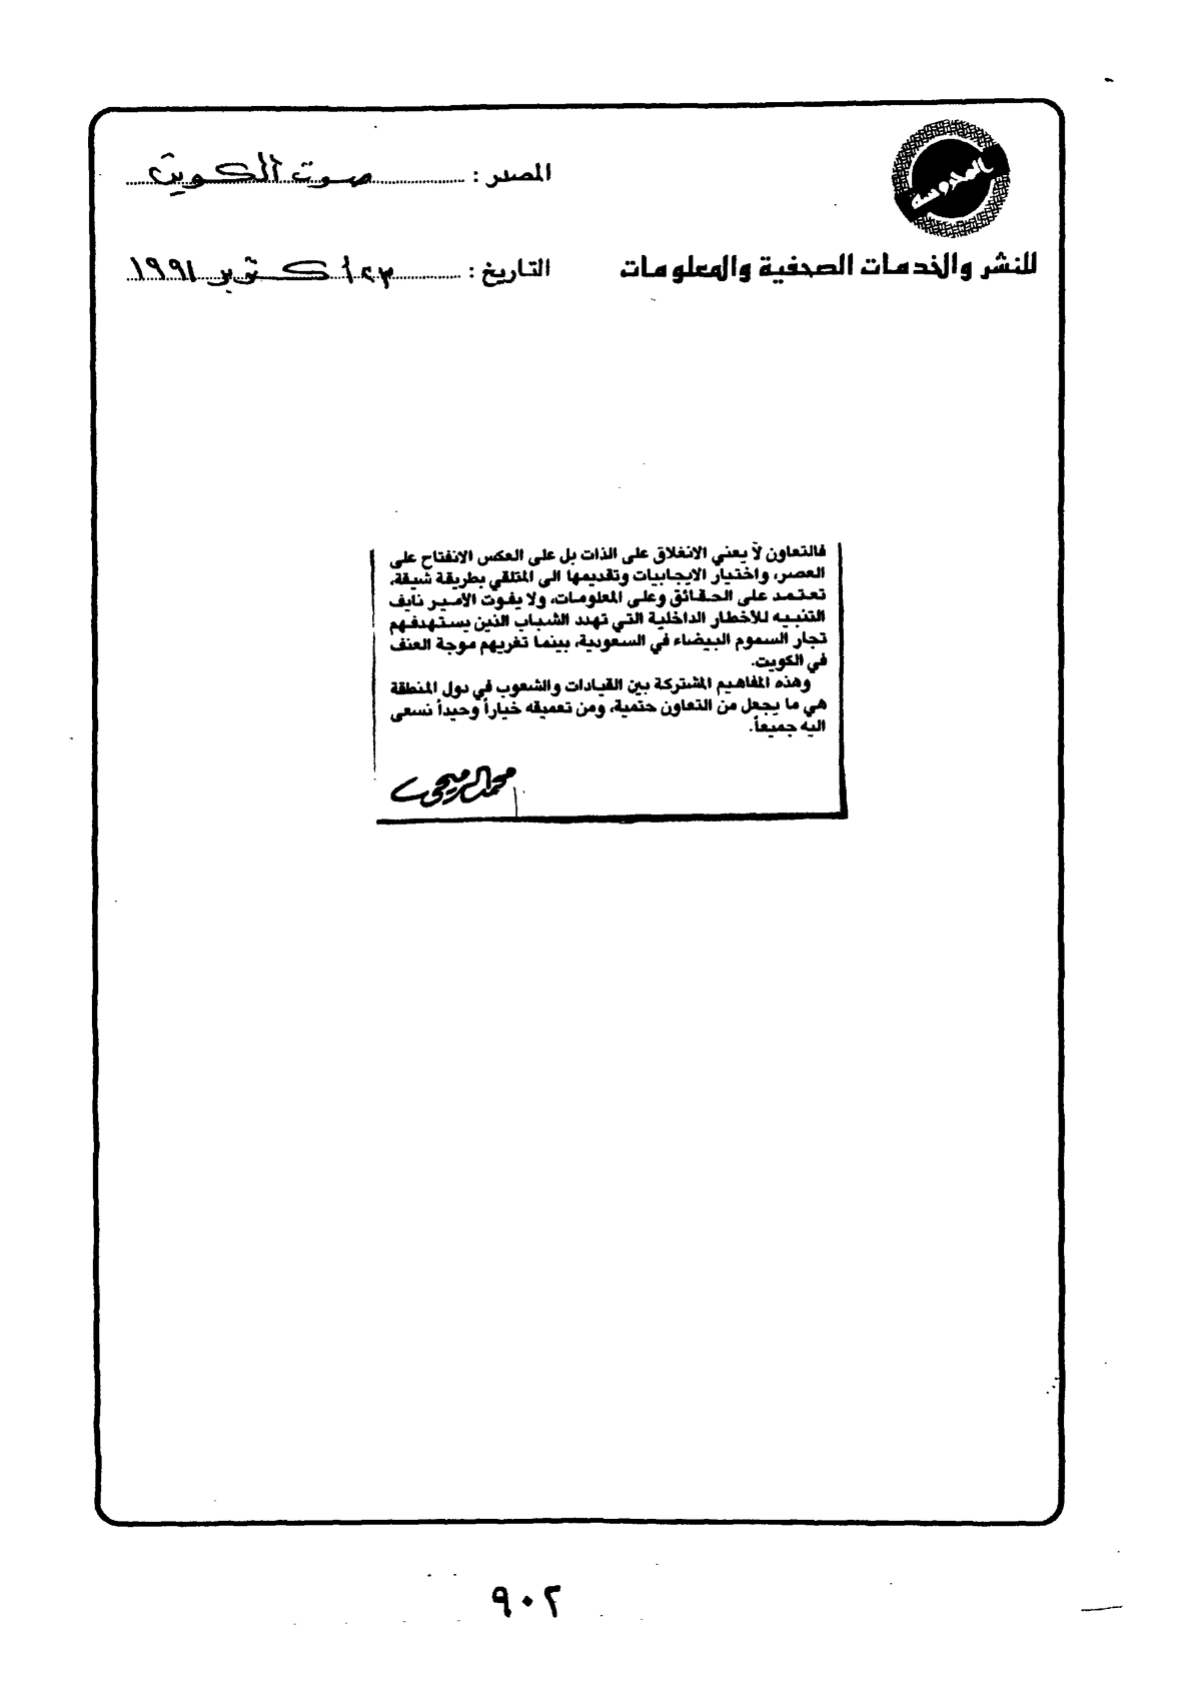 المحروسة
المصدر : صوت الكويت
للنشر والخدمات الصحفية والمعلومات
التاريخ : ٢٣ أكتوبر ١٩٩١
فالتعاون لا يعني الانغلاق على الذات بل على العكس الانفتاح على
العصر، واختيار الايجابيات وتقديمها الى المتلقي بطريقة شيقة،
تعتمد على الحقائق وعلى المعلومات، ولا يفوت الأمير نايف
التنبيه للأخطار الداخلية التي تهدد الشباب الذين يستهدفهم
تجار السموم البيضاء في السعودية، بينما تغريهم موجة العنف
في الكويت.
وهذه المفاهيم المشتركة بين القيادات والشعوب في دول المنطقة
هي ما يجعل من التعاون حتمية، ومن تعميقه خياراً وحيداً نسعى
اليه جميعاً.
محمد الرميحي
٩٠٢